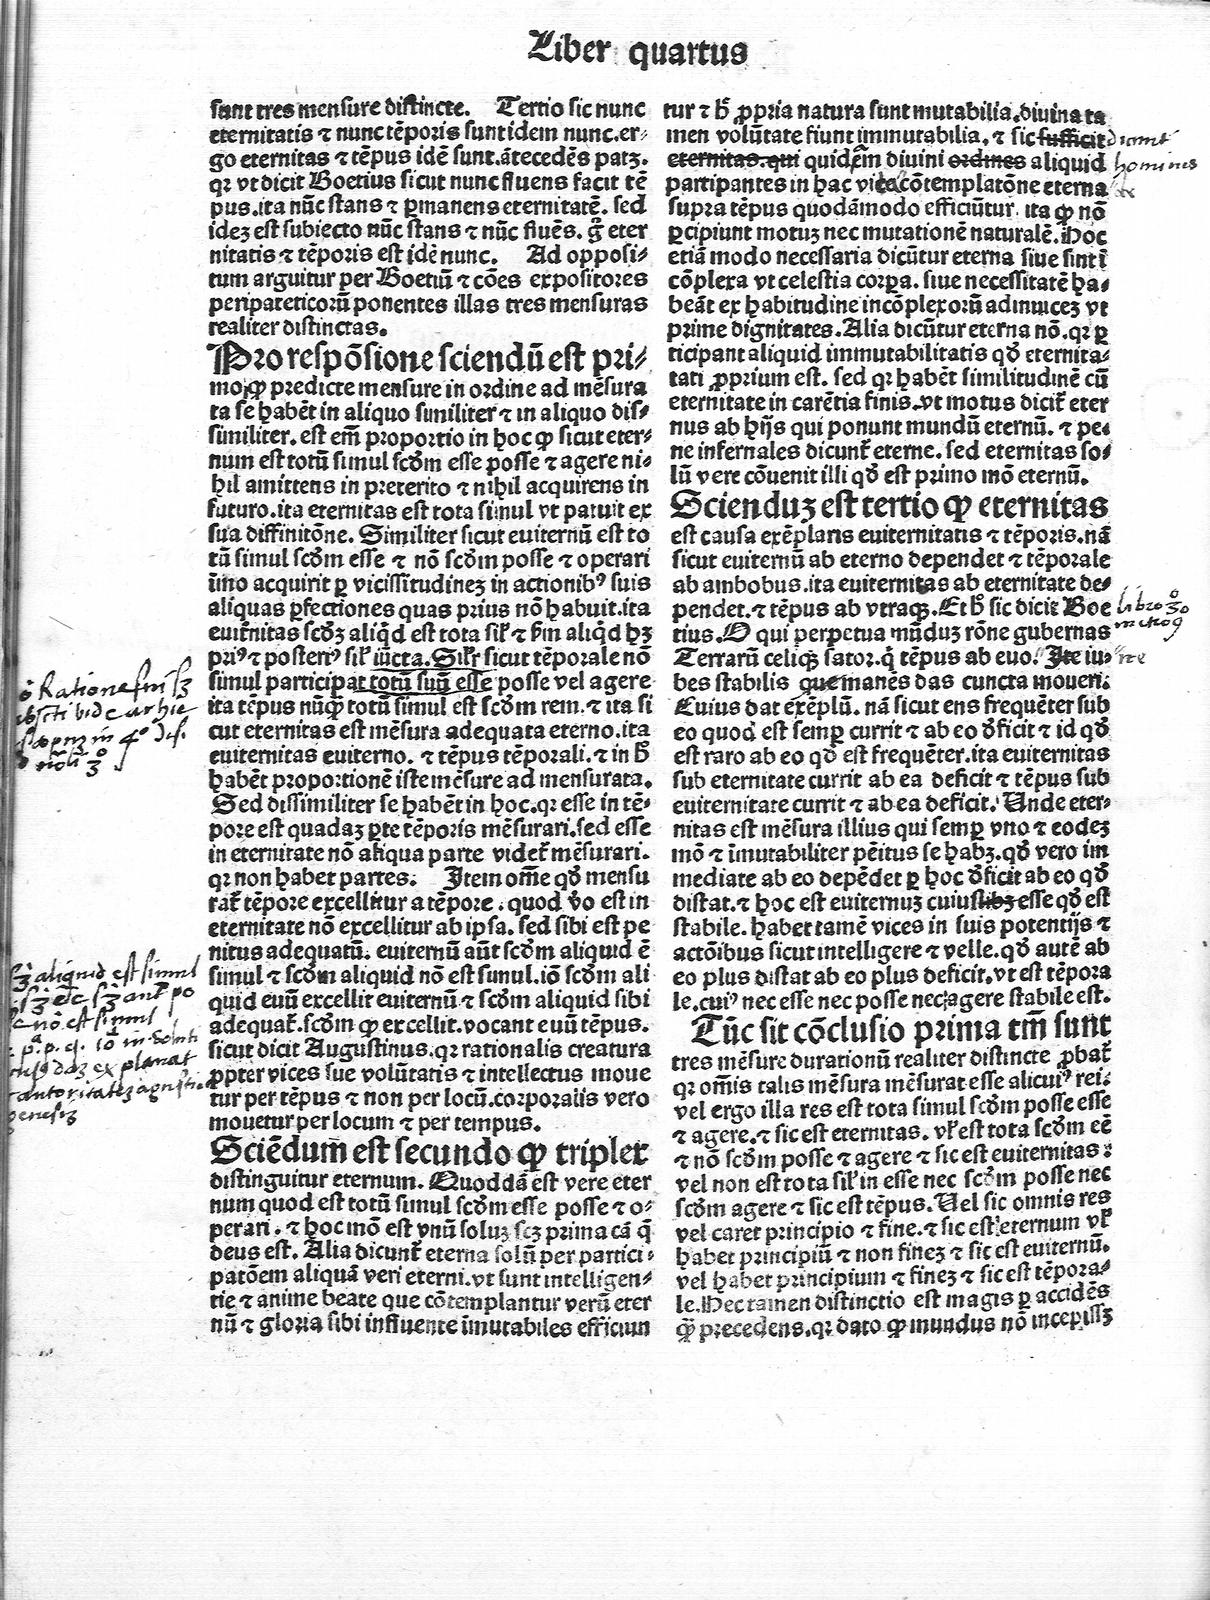 Liber quartus
sunt tres mensure distincte. Tertio sic nunc
eternitatis ⁊ nunc tēporis sunt idem nunc. er⸗
go eternitas ⁊ tēpus idē sunt. ātecedēs patꝫ.
qꝛ vt dicit Boetius sicut nunc fluens facit tē
pus. ita nūc stans ⁊ ꝑmanens eternitatē. sed
ideꝫ est subiecto nūc stans ⁊ nūc fluēs. g̊ eter
nitatis ⁊ tēporis est idē nunc. Ad opposi⸗
tum arguitur per Boetiū ⁊ cōes expositores
peripateticorū ponentes illas tres mensuras
realiter distinctas.
Pro respōsione sciendū est pri⸗
mo ꝙ predicte mensure in ordine ad mēsura
ta se habēt in aliquo similiter ⁊ in aliquo dis⸗
similiter. est em̄ proportio in hoc ꝙ sicut eter⸗
num est totū simul scd̄m esse posse ⁊ agere ni⸗
hil amittens in preterito ⁊ nihil acquirens in
futuro. ita eternitas est tota simul vt patuit ex
sua diffinitōne. Similiter sicut euiternū est to
tū simul scd̄m esse ⁊ nō scd̄m posse ⁊ operari
īmo acquirit ꝑ vicissitudineꝫ in actionibꝰ suis
aliquas ꝑfectiones quas prius nō habuit. ita
euit̄nitas scd̄ꝫ aliq̄d est tota sil̄ ⁊ ẜm aliq̄d hꝫ
priꝰ ⁊ posteriꝰ sil̄ iūcta. Sil̄r sicut tēporale nō
simul participat totū suū esse posse vel agere
ita tēpus nūꝙ̄ totū simul est scd̄m rem. ⁊ ita si
cut eternitas est mēsura adequata eterno. ita
euiternitas euiterno. ⁊ tēpus tēporali. ⁊ in h̄
habēt proportionē iste mēsure ad mensurata.
Sed dissimiliter se habēt in hoc. qꝛ esse in tē⸗
pore est quadaꝫ ꝑte tēporis mēsurari. sed esse
in eternitate nō aliqua parte videt̄ mēsurari.
qꝛ non habet partes. Item om̄e qd̄ mensu
rat̄ tēpore excellitur a tēpore. quod v̄o est in
eternitate nō excellitur ab ipsa. sed sibi est pe
nitus adequatū. euiternū aūt scd̄m aliquid ē
simul ⁊ scd̄m aliquid nō est simul. iō scd̄m ali
quid euū excellit euiternū ⁊ scd̄m aliquid sibi
adequat̄. scd̄m ꝙ excellit. vocant euū tēpus.
sicut dicit Augustinus. qꝛ rationalis creatura
ꝓpter vices sue volūtatis ⁊ intellectus moue
tur per tēpus ⁊ non per locū. corporalis vero
mouetur per locum ⁊ per tempus.
Sciēdum est secundo ꝙ triplex
distinguitur eternum. Quoddā est vere eter
num quod est totū simul scd̄m esse posse ⁊ o⸗
perari. ⁊ hoc mō est vnū soluꝫ scꝫ prima cā q̄
deus est. Alia dicunt̄ eterna solū per partici⸗
patōem aliquā veri eterni. vt sunt intelligen⸗
tie ⁊ anime beate que cōtemplantur verū eter
nū ⁊ gloria sibi influente īmutabiles efficiun
tur ⁊ h̄ ꝓpria natura sunt mutabilia. diuina ta
men volūtate fiunt immutabilia. ⁊ sic sufficit
eternitas. qui quidem diuini ordines aliquid
partipantes in hac vita cōtemplatōne eterna
supra tēpus quodāmodo efficiūtur. ita ꝙ nō
ꝑcipiunt motuꝫ nec mutationē naturalē. Hoc
etiā modo necessaria dicūtur eterna siue sint ī
cōplexa vt celestia corpa. siue necessitatē ha⸗
beāt ex habitudine incōplexorū adinuiceꝫ vt
prime dignitates. Alia dicūtur eterna nō. qꝛ ꝑ
ticipant aliquid immutabilitatis qd̄ eternita⸗
tati ꝓprium est. sed qꝛ habēt similitudinē cū
eternitate in carētia finis. vt motus dicit̄ eter
nus ab hijs qui ponunt mundū eternū. ⁊ pe⸗
ne infernales dicunt̄ eterne. sed eternitas so⸗
lū vere cōuenit illi qd̄ est primo mō eternū.
Scienduꝫ est tertio ꝙ eternitas
est causa exēplaris euiternitatis ⁊ tēporis. nā
sicut euiternū ab eterno dependet ⁊ tēporale
ab ambobus. ita euiternitas ab eternitate de⸗
pendet. ⁊ tēpus ab vtraqꝫ. Et h̄ sic dicit Boe
tius. O qui perpetua mūduꝫ rōne gubernas
Terrarū celiqꝫ sator. q̄ tēpus ab euo. Ite iu⸗
bes stabilis que manēs das cuncta moueri.
Cuius dat exēplū. nā sicut ens frequēter sub
eo quod est semꝑ currit ⁊ ab eo d̄ficit ⁊ id qd̄
est raro ab eo qd̄ est frequēter. ita euiternitas
sub eternitate currit ab ea deficit ⁊ tēpus sub
euiternitate currit ⁊ ab ea deficit. Unde eter⸗
nitas est mēsura illius qui semꝑ vno ⁊ eodeꝫ
mō ⁊ īmutabiliter pēitus se habꝫ. qd̄ vero im
mediate ab eo depēdet ꝑ hoc d̄ficit ab eo qd̄
distat. ⁊ hoc est euiternuꝫ cuiuslibꝫ esse qd̄ est
stabile. habet tamē vices in suis potentijs ⁊
actōibus sicut intelligere ⁊ velle. qd̄ autē ab
eo plus distat ab eo plus deficit. vt est tēpora
le. cuiꝰ nec esse nec posse nec agere stabile est.
Tūc sit cōclusio prima tm̄ sunt
tres mēsure durationū realiter distincte ꝓbat̄
qꝛ om̄is talis mēsura mēsurat esse alicuiꝰ rei.
vel ergo illa res est tota simul scd̄m posse esse
⁊ agere. ⁊ sic est eternitas. vl̄ est tota scd̄m eē
⁊ nō scd̄m posse ⁊ agere ⁊ sic est euiternitas:
vel non est tota sil̄ in esse nec scd̄m posse nec
scd̄m agere ⁊ sic est tēpus. Uel sic omnis res
vel caret principio ⁊ fine. ⁊ sic est eternum vl̄
habet principiū ⁊ non fineꝫ ⁊ sic est euiternū.
vel habet principium ⁊ fineꝫ ⁊ sic est tēpora⸗
le. Hec tamen distinctio est magis ꝑ accidēs
ꝙ̄ precedens. qꝛ dato ꝙ mundus nō incepissꝫ
hominis
libro 3o
metro 9
Ratione fini
aliquid est simul
no est simul
explanat
autoritateꝫ